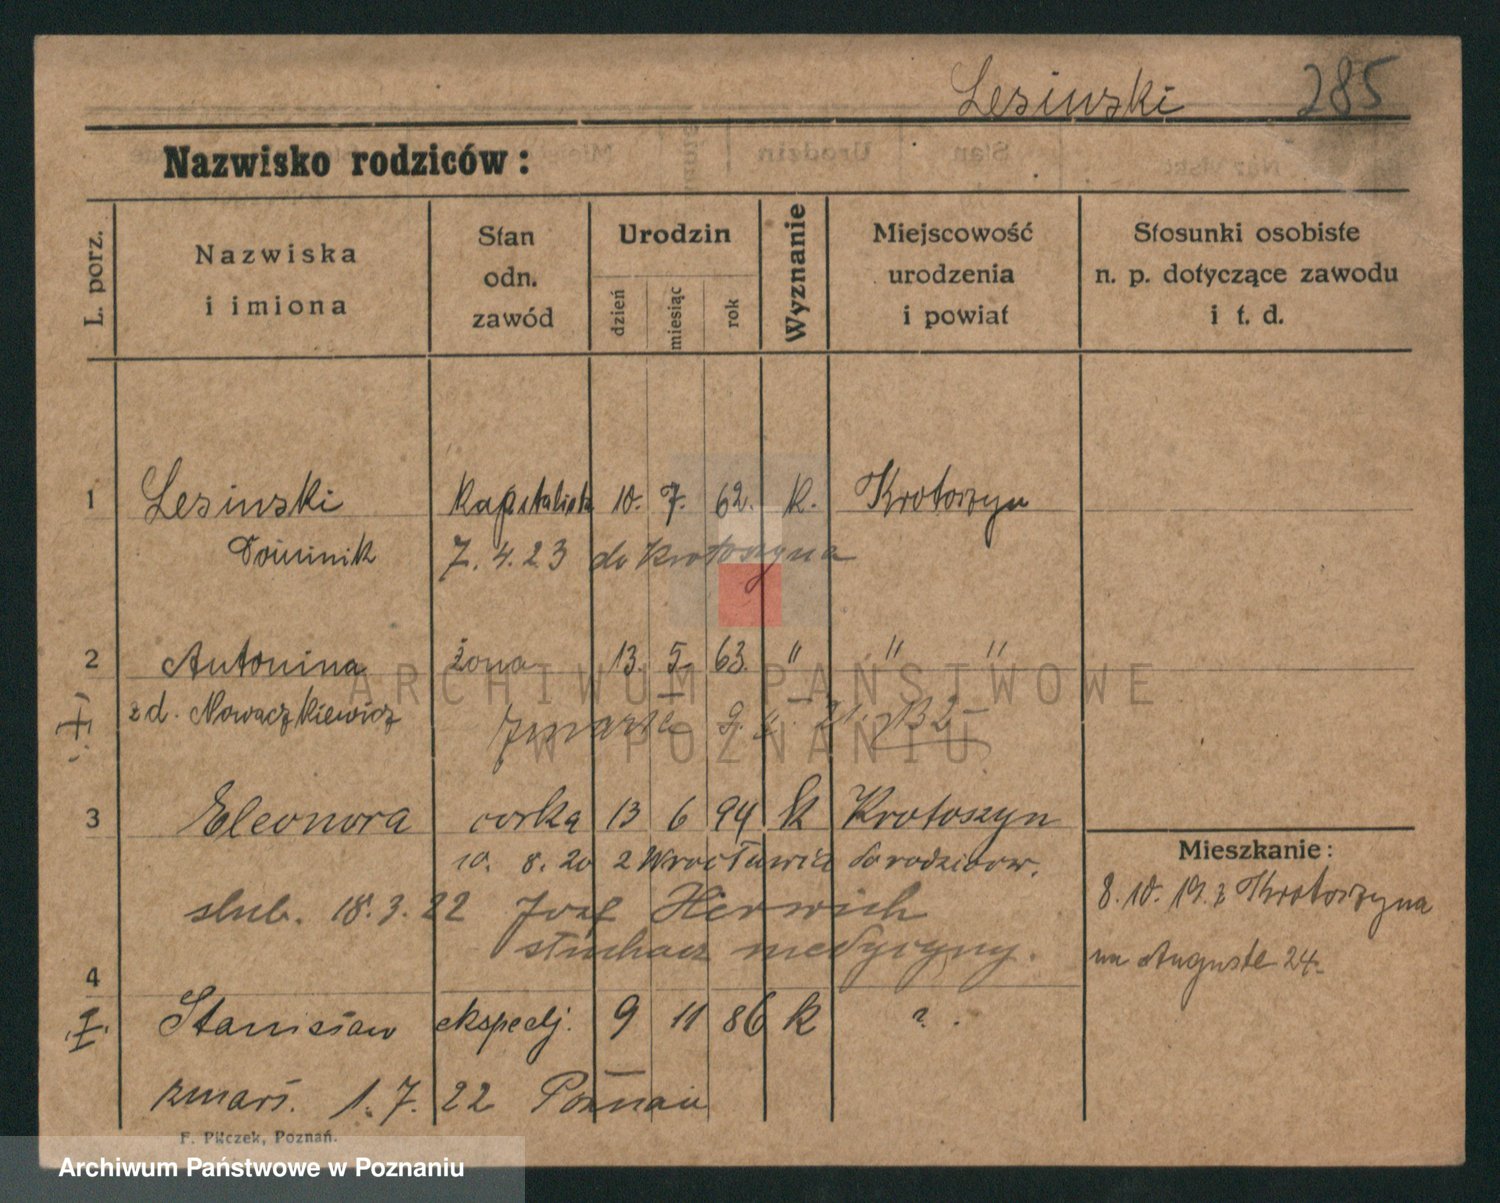 Lesinski 285
Nazwisko rodziców:
L. porz.
Nazwiska i imiona
Stan odn. zawód
Urodzin
dzień miesiąc rok
Wyznanie
Miejscowość urodzenia i powiat
Stosunki osobiste n. p. dotyczące zawodu i t. d.
1 Lesinski kapitalista 10. 7. 62. k. Krotoszyn
Dominik 7. 4. 23 do Krotoszyna
2 Antonina żona 13. 5. 63. " " "
z d. Nowaczkiewicz zmarła 9. 21.
3 Eleonora corka 13 6 94 k Krotoszyn
10. 8. 20 z Wrocławia do rodzicow.
slub. 18. 3. 22 Jozef Herwich
słuchacz medycyny.
Mieszkanie:
8. 10. 19. z Krotoszyna
na Auguste 24
4 Stanisław ekspedj. 9 11 86 k ?.
zmarł. 1. 7. 22 Poznań
F. Pilczek, Poznań.
ARCHIWUM PAŃSTWOWE
W POZNANIU
Archiwum Państwowe w Poznaniu